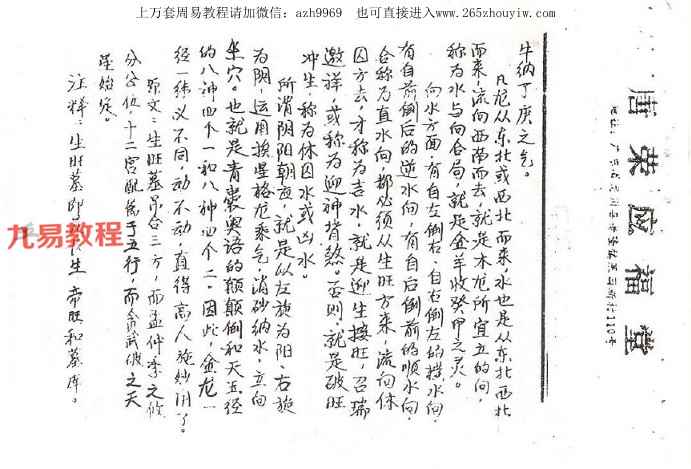 上万套周易教程请加微信：azh9969 也可直接进入www.265zhouyiw.com
唐荣应福堂
牛纳丁庚之气。
凡龙从东北或西北而来，水也是从东北西北
而来，流向西南而去，就是木龙所宜立的向
称为水与向合局，就是金羊收癸甲之灵。
向水方面，有自左倒右，自右倒左的横水向，
有自前倒后的逆水向，有自后倒前的顺水向，
合称为直水向，都必须从生旺方来，流向休
囚方去，才称为吉水，就是迎生接旺，召瑞
邀祥，或称为迎神背煞。否则，就是破旺
冲生，称为休囚水或凶水。
所谓阴阳朝夜，就是以左旋为阳、右旋
为阴，运用挨星格龙乘气，消砂纳水，立向
坐穴。也就是青囊奥语的颠颠倒和天玉经
的八神四个一和八神四个二。因此，金龙一
经一纬义不同，动不动，直得高人施妙用了。
原文：生旺墓吊合三方，而孟仲季之攸
分公位，十二宫配属于五行，而贪武破之天
星始定。
注释：生旺墓即 生 帝旺和墓库。
九易教程